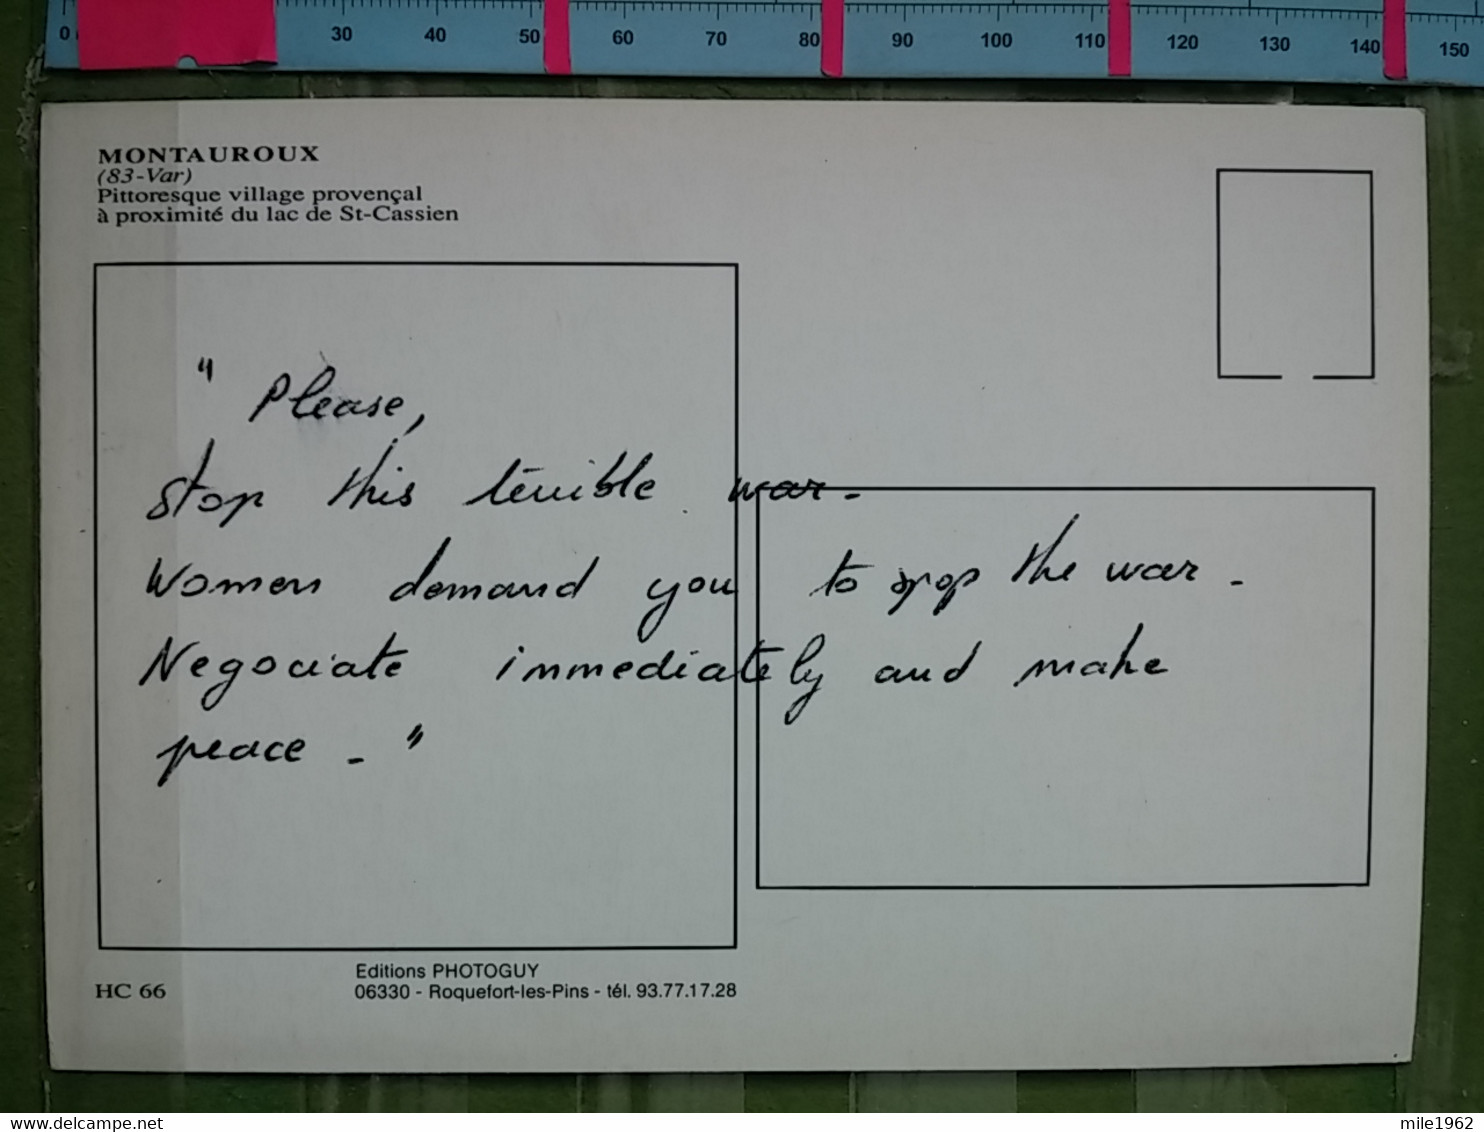 0 30 40 50 60 70 80 90 100 110 120 130 140 150
MONTAUROUX
(83-Var)
Pittoresque village provençal
à proximité du lac de St-Cassien
" Please,
stop this terrible war.
Women demand you to spop the war.
Negociate immediately and make
peace. "
HC 66
Editions PHOTOGUY
06330 - Roquefort-les-Pins - tél. 93.77.17.28
mile1962